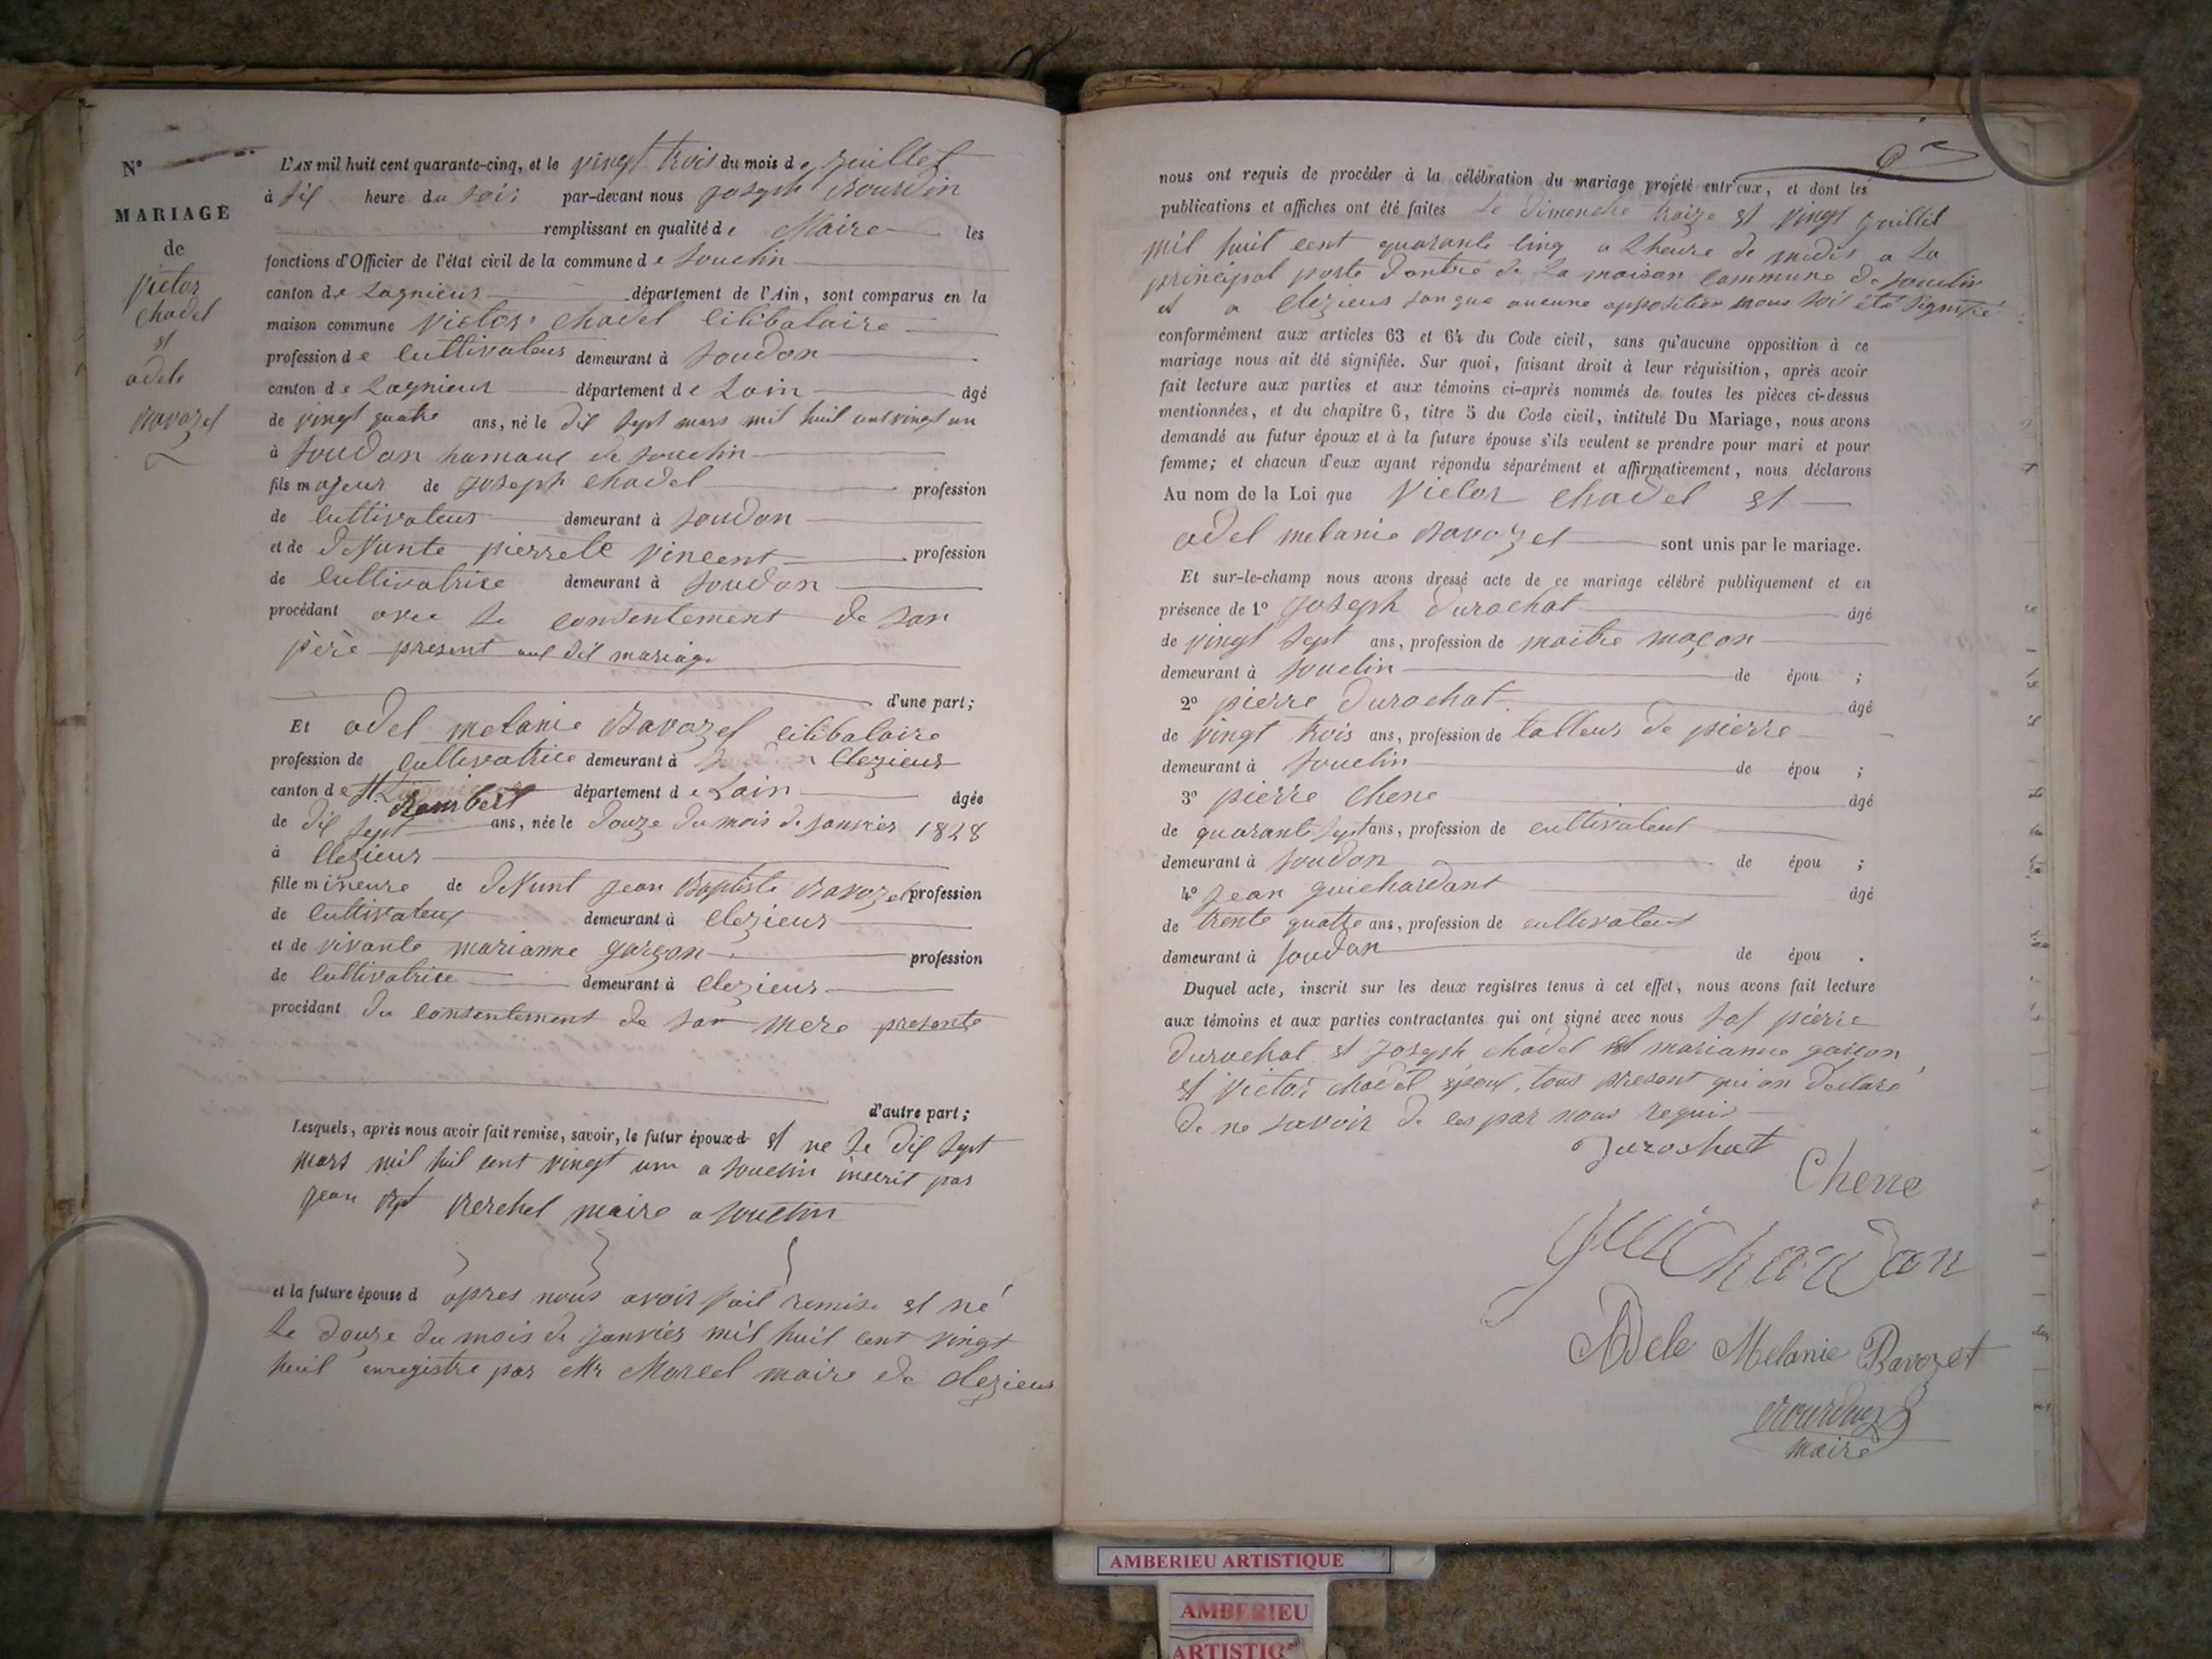 N°
MARIAGE
de
Victor
Chadel
et
adele
Ravozet
L'AN mil huit cent quarante-cinq, et le vingt trois du mois de juillet
à six heure du soir par-devant nous joseph Bourdin
remplissant en qualité de Maire les
fonctions d'Officier de l'état civil de la commune de Souclin
canton de Lagnieux département de l'Ain, sont comparus en la
maison commune Victor Chadel Cilibataire
profession de Cultivateur demeurant à Soudon
canton de Lagnieux département de Lain âgé
de vingt quatre ans, né le dix sept mars mil huit cent vingt un
à Soudon hamaux de Souclin
fils majeur de Joseph Chadel profession
de Cultivateur demeurant à Soudon
et de deffunte pierrete Vincent profession
de Cultivatrice demeurant à Soudon
procédant avec le consentement de son
père present aux dit mariage
d'une part;
Et adel melanie Ravozet cilibataire
profession de Cultivatrice demeurant à Clezieux
canton de St Rambert département de Lain âgée
de dix sept ans, née le douze du mois de janvier 1828
à Clezieux
fille mineure de deffunt jean Baptiste Ravozet profession
de Cultivateur demeurant à Clezieux
et de vivante marianne garçon profession
de Cultivatrice demeurant à Clezieux
procédant du consentement de son mere presente
d'autre part;
Lesquels, après nous avoir fait remise, savoir, le futur époux d et ne le dix sept
mars mil huit cent vingt um a souclin inscrit par
jean Bpt Verchel maire a souclin
et la future épouse d apres nous avoir fait remise et né
Le douze du mois de janvier mil huit cent vingt
huit enregistre par Mr Morcel maire de clezieux
nous ont requis de procéder à la célébration du mariage projeté entr'eux, et dont les
publications et affiches ont été faites Le dimenche traize et vingt juillet
mil huit cent quarante cinq a Lheure de midis a La
principal porte dontré de La maison commune de souclin
et a clezieux san que aucune opposition nous soit été signifié
conformément aux articles 63 et 64 du Code civil, sans qu'aucune opposition à ce
mariage nous ait été signifiée. Sur quoi, faisant droit à leur réquisition, après avoir
fait lecture aux parties et aux témoins ci-après nommés de toutes les pièces ci-dessus
mentionnées, et du chapitre 6, titre 5 du Code civil, intitulé Du Mariage, nous avons
demandé au futur époux et à la future épouse s'ils veulent se prendre pour mari et pour
femme; et chacun d'eux ayant répondu séparément et affirmativement, nous déclarons
Au nom de la Loi que Victor Chadel et
adel melanie Ravozet sont unis par le mariage.
Et sur-le-champ nous avons dressé acte de ce mariage célébré publiquement et en
présence de 1° joseph durochat âgé
de vingt sept ans, profession de maitre maçon
demeurant à Souclin de épou ;
2° pierre durochat âgé
de vingt trois ans, profession de talleur de pierre
demeurant à Souclin de épou ;
3° pierre Chene âgé
de quarante sept ans, profession de cultivateur
demeurant à Soudon de épou ;
4° jean guichardant âgé
de trente quatre ans, profession de cultivateur
demeurant à Soudon de épou .
Duquel acte, inscrit sur les deux registres tenus à cet effet, nous avons fait lecture
aux témoins et aux parties contractantes qui ont signé avec nous sof pierre
durochat et joseph chadel et marianne garcon
et Victor chadel époux, tous present qui on declaré
de ne savoir de ces par nous requis
Durochat
Chene
guichardon
ADele Melanie Ravozet
Bourdin
maire
AMBERIEU ARTISTIQUE
AMBERIEU
ARTISTIQ